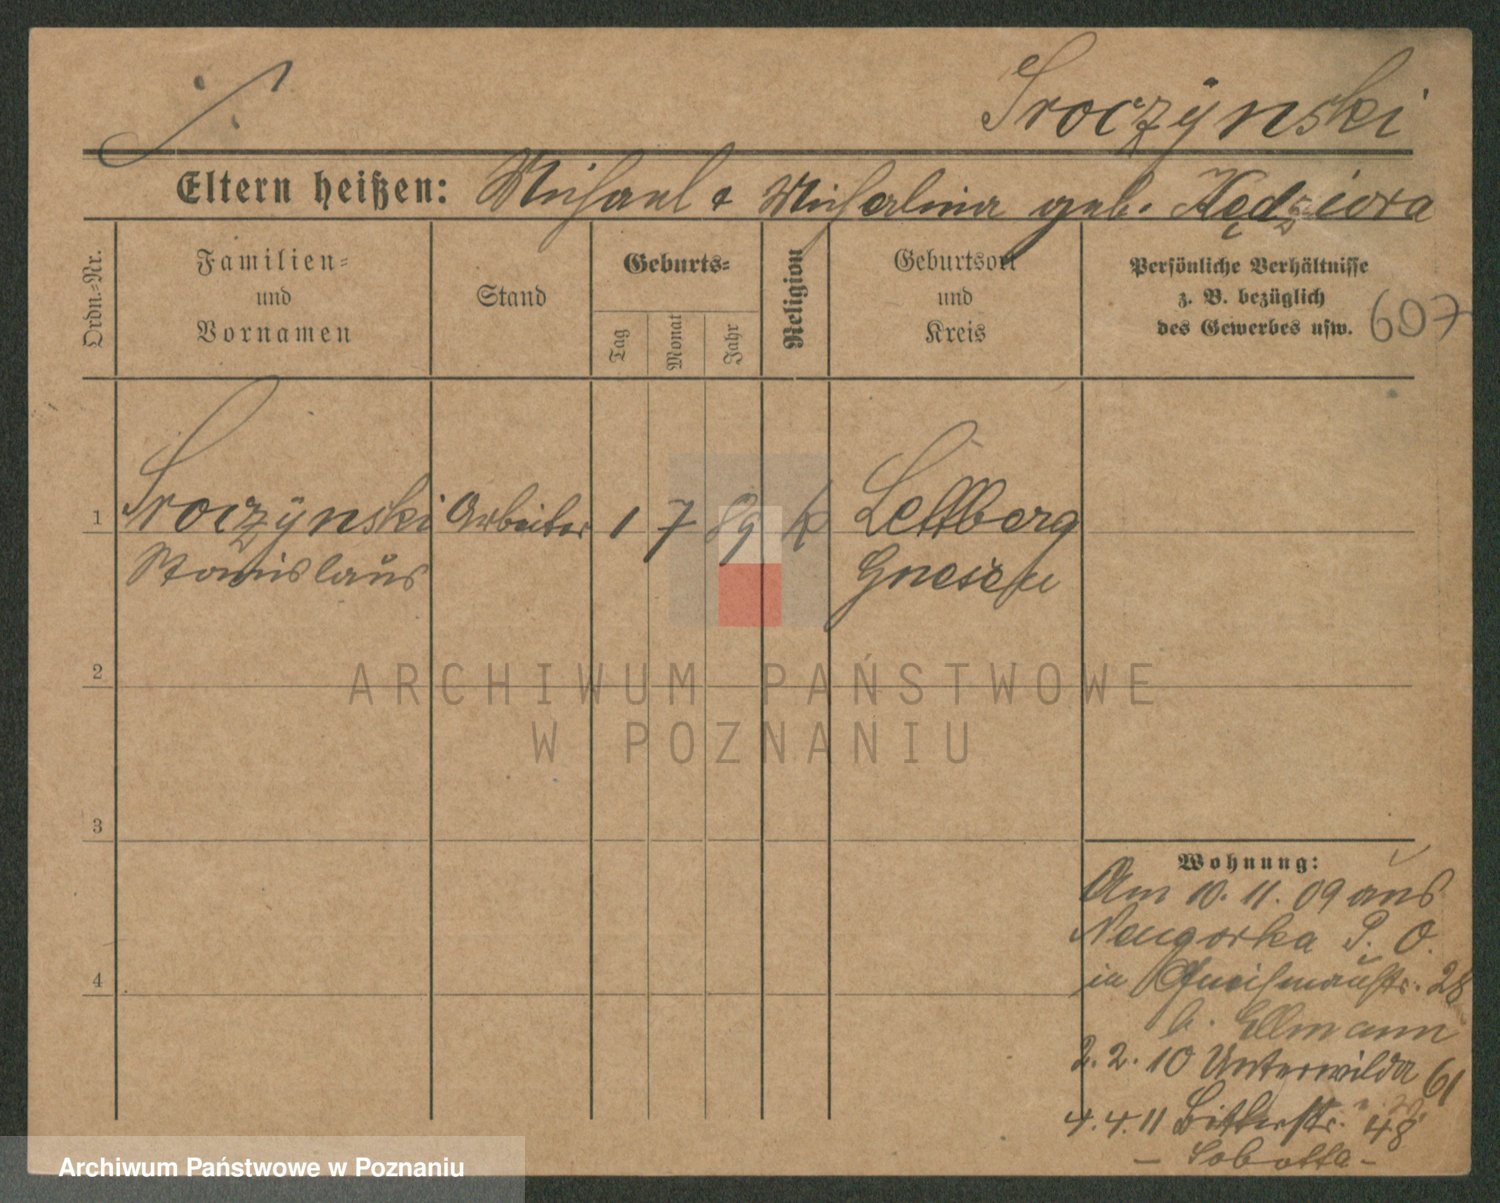 Sroczynski
Eltern heißen: Michael & Michalina geb. Kędziora
Ordn.-Nr.
Familien-
und
Vornamen
Stand
Geburts-
Tag
Monat
Jahr
Religion
Geburtsort
und
Kreis
Persönliche Verhältnisse
z. B. bezüglich
des Gewerbes usw.
607
1 Sroczynski Arbeiter 1 7 89 k Lettberg
Stanislaus Gnesen
2
3
4
ARCHIWUM PAŃSTWOWE
W POZNANIU
Wohnung:
Am 10. 11. 09 aus
Neugorka P. O.
in 28
b. Ellmann
2. 2. 10 Unterwilda 61
4. 4. 11 Bitterstr. 48
- Sobotta -
Archiwum Państwowe w Poznaniu